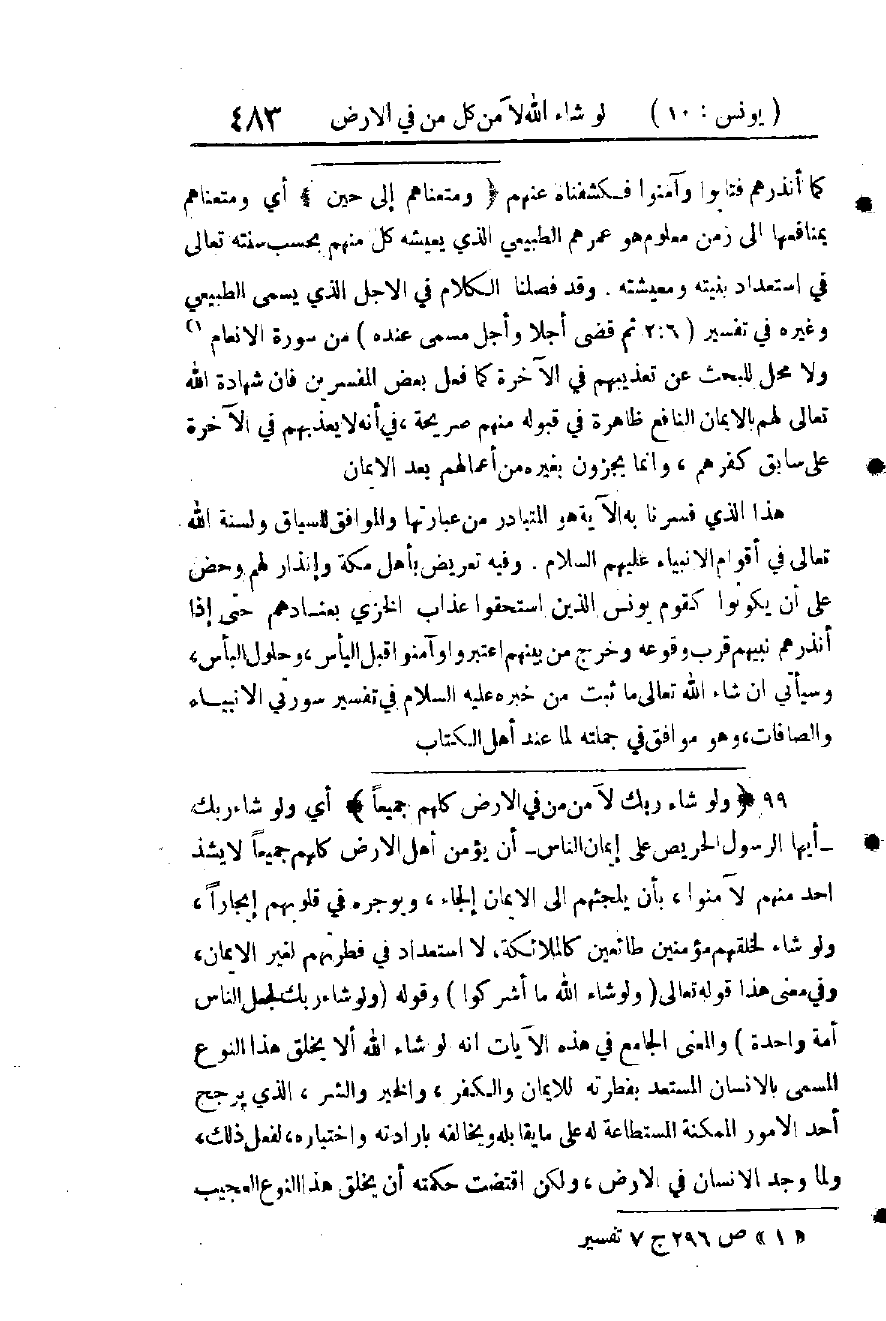 ( يونس : ١٠ ) لو شاء الله لآمن كل من في الارض ٤٨٣
كما أنذرهم فتابوا وآمنوا فكشفناه عنهم ﴿ ومتعناهم إلى حين ﴾ أي ومتعناهم
بمنافعها الى زمن معلوم هو عمرهم الطبيعي الذي يعيشه كل منهم بحسب سنته تعالى
في استعداد بنيته ومعيشته . وقد فصلنا الكلام في الاجل الذي يسمى الطبيعي
وغيره في تفسير ( ٢:٦ ثم قضى أجلا وأجل مسمى عنده ) من سورة الانعام ١)
ولا محل للبحث عن تعذيبهم في الآخرة كما فعل بعض المفسرين فان شهادة الله
تعالى لهم بالايمان النافع ظاهرة في قبوله منهم صريحة ، في أنه لا يعذبهم في الآخرة
على سابق كفرهم ، وانما يجزون بغيره من أعمالهم بعد الايمان
هذا الذي فسرنا به الآية هو المتبادر من عبارتها والموافق للسياق ولسنة الله
تعالى في أقوام الانبياء عليهم السلام . وفيه تعريض بأهل مكة وإنذار لهم وحض
على أن يكونوا كقوم يونس الذين استحقوا عذاب الخزي بعنادهم حتى إذا
أنذرهم نبيهم قرب وقوعه وخرج من بينهم اعتبروا وآمنوا قبل اليأس ، وحلول البأس،
وسيأتي ان شاء الله تعالى ما ثبت من خبره عليه السلام في تفسير سورتي الانبياء
والصافات، وهو موافق في جملته لما عند أهل الكتاب
٩٩ ﴿ ولو شاء ربك لآمن من في الارض كلهم جميعاً ﴾ أي ولو شاء ربك
ـ أيها الرسول الحريص على إيمان الناس ـ أن يؤمن أهل الارض كلهم جميعاً لا يشذ
احد منهم لآمنوا ، بأن يلجئهم الى الايمان إلجاء ، ويوجره في قلوبهم إيجاراً ،
ولو شاء لخلقهم مؤمنين طائعين كالملائكة، لا استعداد في فطرتهم لغير الايمان،
وفي معنى هذا قوله تعالى ( ولو شاء الله ما أشركوا ) وقوله (ولو شاء ربك لجعل الناس
أمة واحدة ) والمعنى الجامع في هذه الآيات انه لو شاء الله ألا يخلق هذا النوع
المسمى بالانسان المستعد بفطرته للايمان والكفر ، والخير والشر ، الذي يرجح
أحد الامور الممكنة المستطاعة له على ما يقابله ويخالفه بارادته واختياره، لفعل ذلك،
ولما وجد الانسان في الارض ، ولكن اقتضت حكمته أن يخلق هذا النوع العجيب
«١» ص ٢٩٦ ج ٧ تفسير